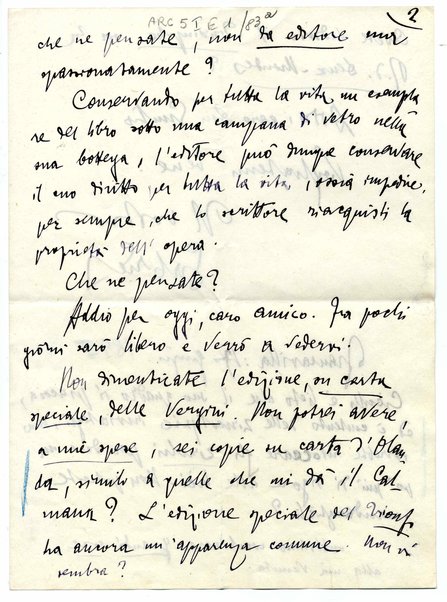 ARC 5 I E d /83 a
2
che ne pensate, non da editore ma
spassionatamente?
Conservando, per tutta la vita, un esempla
re del libro sotto una campana di vetro nella
sua bottega, l'editore può dunque conservare
il suo diritto, per tutta la vita, ossia impedire,
per sempre, che lo scrittore riacquisti la
proprietà dell'opera.
Che ne pensate?
Addio per oggi, caro amico. Fra pochi
giorni sarò libero e verrò a vedervi.
Non dimenticate l'edizione, su carta
speciale, delle Vergini. Non potrei avere,
a mie spese, sei copie su carta d'Olan
da, simili a quelle che mi dà il Cal-
mann? L'edizione speciale del Trionf.
ha ancora un'apparenza comune. Non vi
sembra?